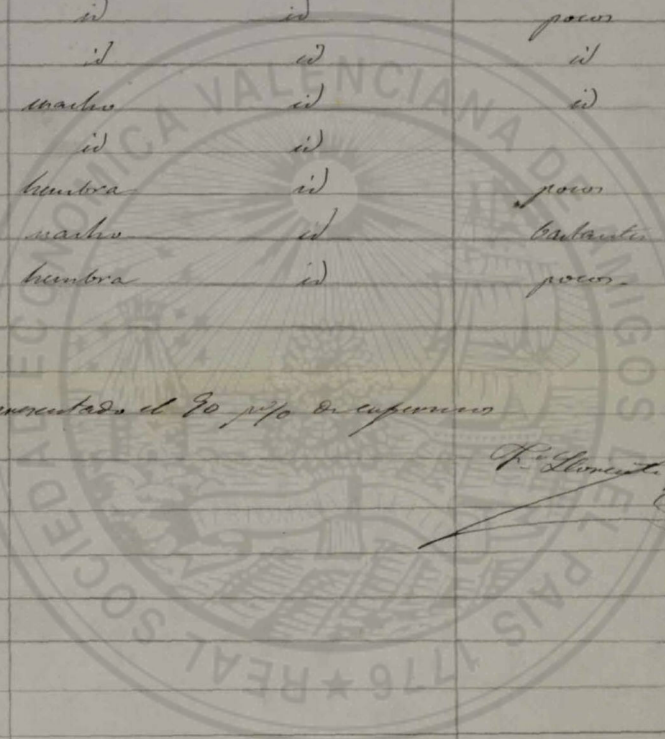 id id pocos
id id id
macho id id
id id
hembra id pocos
macho id bastantes
hembra id pocos
el 90 p% de enfermos
Llorente
REAL SOCIEDAD ECONOMICA VALENCIANA DE AMIGOS DEL PAIS 1776